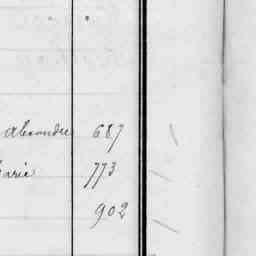 Alexandre 687
arie 773
902